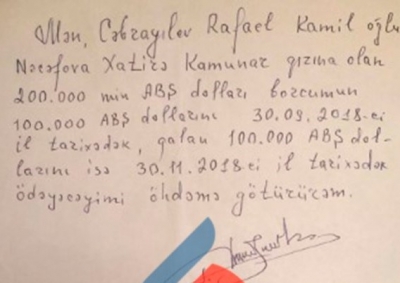 Mən, Cəbrayılov Rafael Kamil oğlu
Nəcəfova Xatirə Kamunar qızına olan
200.000 min ABŞ dolları borcumun
100.000 ABŞ dollarını 30.09.2018-ci
il tarixədək, qalan 100.000 ABŞ dol-
larını isə 30.11.2018-ci il tarixədək
ödəyəcəyimi öhdəmə götürürəm.